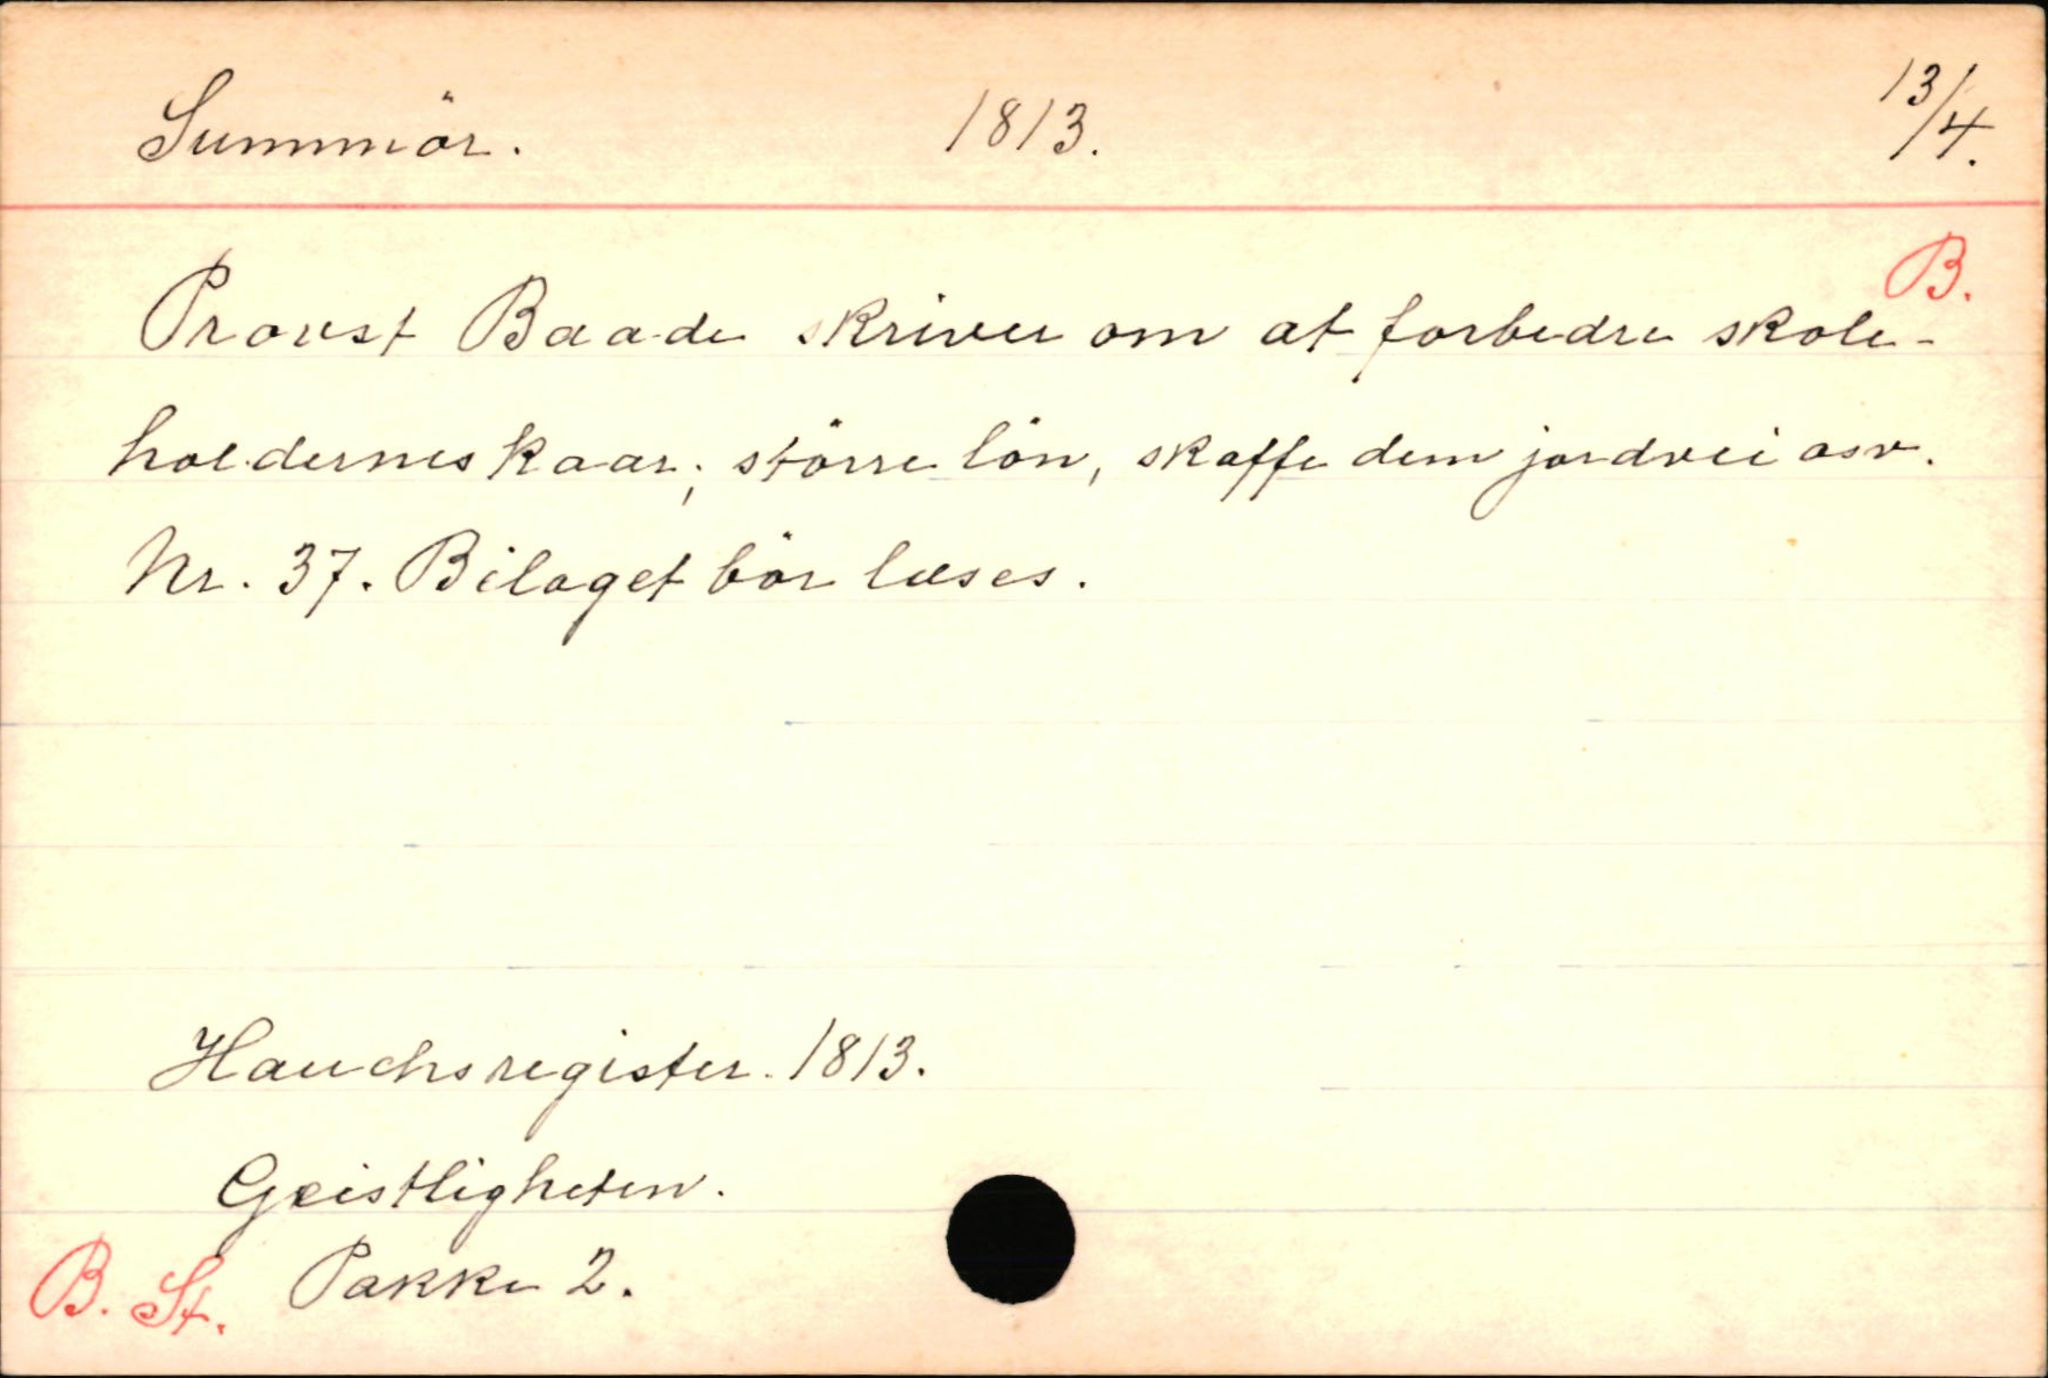 Sunnmör. 1813. 13/4.
B.
Provst Baade skriver om at forbedre skole-
holdernes kaar; större lön, skaffe dem jordvei osv.
Nr. 37. Bilaget bör læses.
Hauchs register. 1813.
Geistligheten.
B. St. Pakke 2.